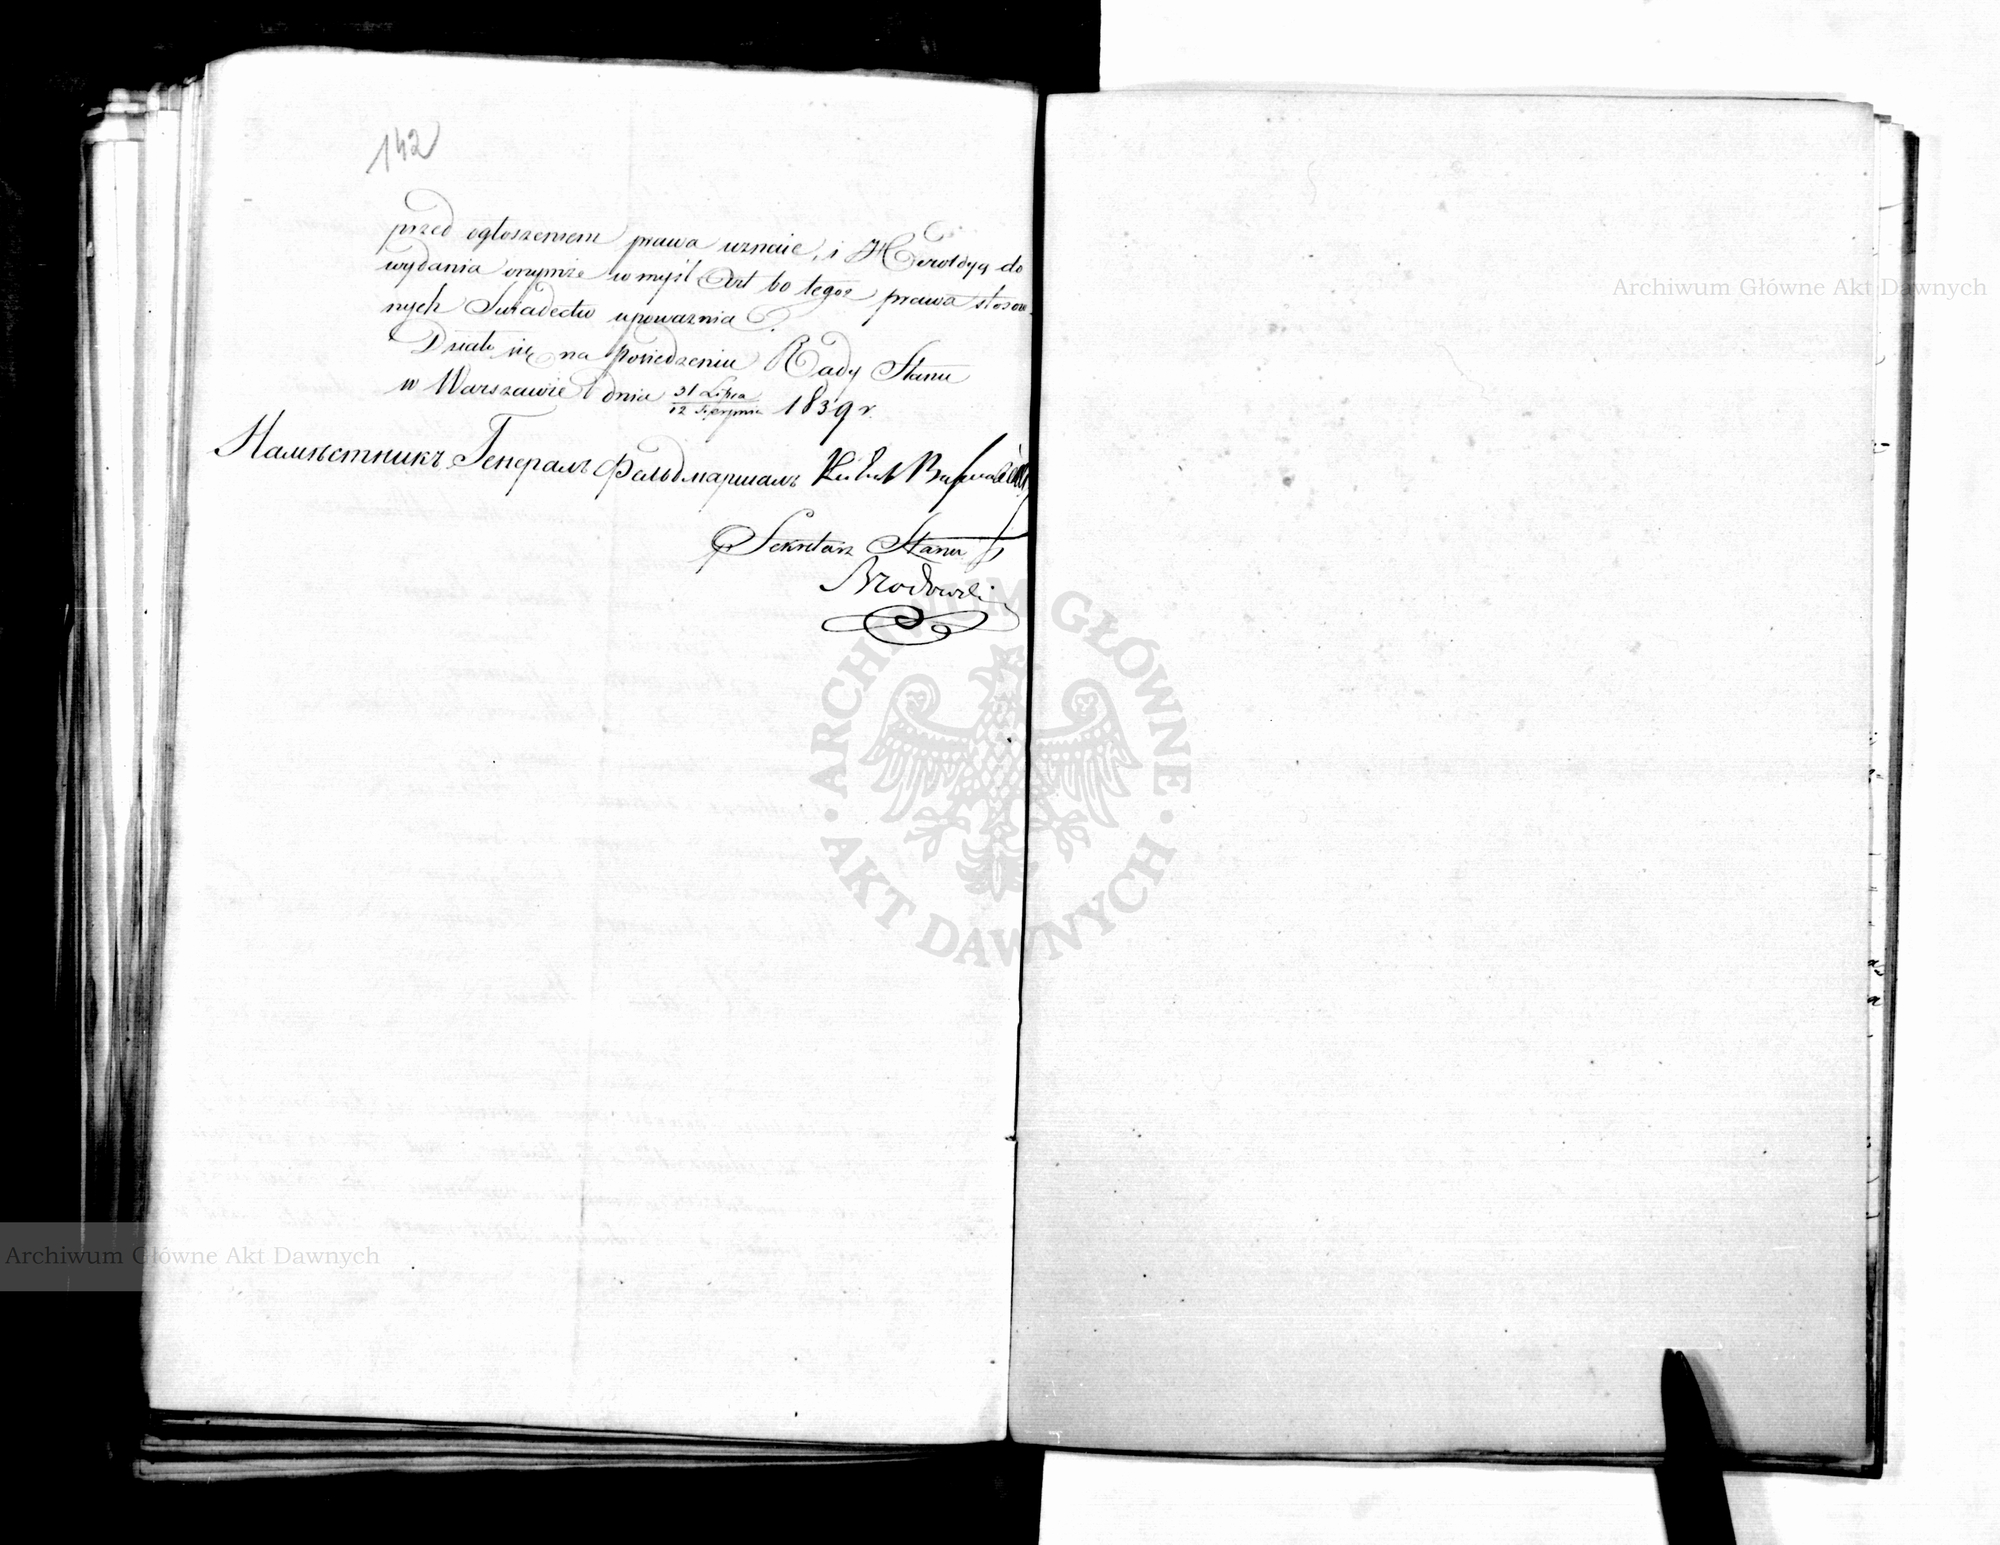 142
przed ogłoszeniem prawa uznaie, i Heroldyą do
wydania onymże w myśl Art 60 tegoż prawa stosow-
nych Swiadectw upoważnia.
Działo się na Posiedzeniu Rady Stanu
w Warszawie dnia 31 Lipca / 12 Sierpnia 1839 r.
Намѣстникъ Генералъ Фельдмаршалъ
Sekretarz Stanu
Brodowski
Archiwum Główne Akt Dawnych
ARCHIWUM GŁÓWNE AKT DAWNYCH
Archiwum Główne Akt Dawnych